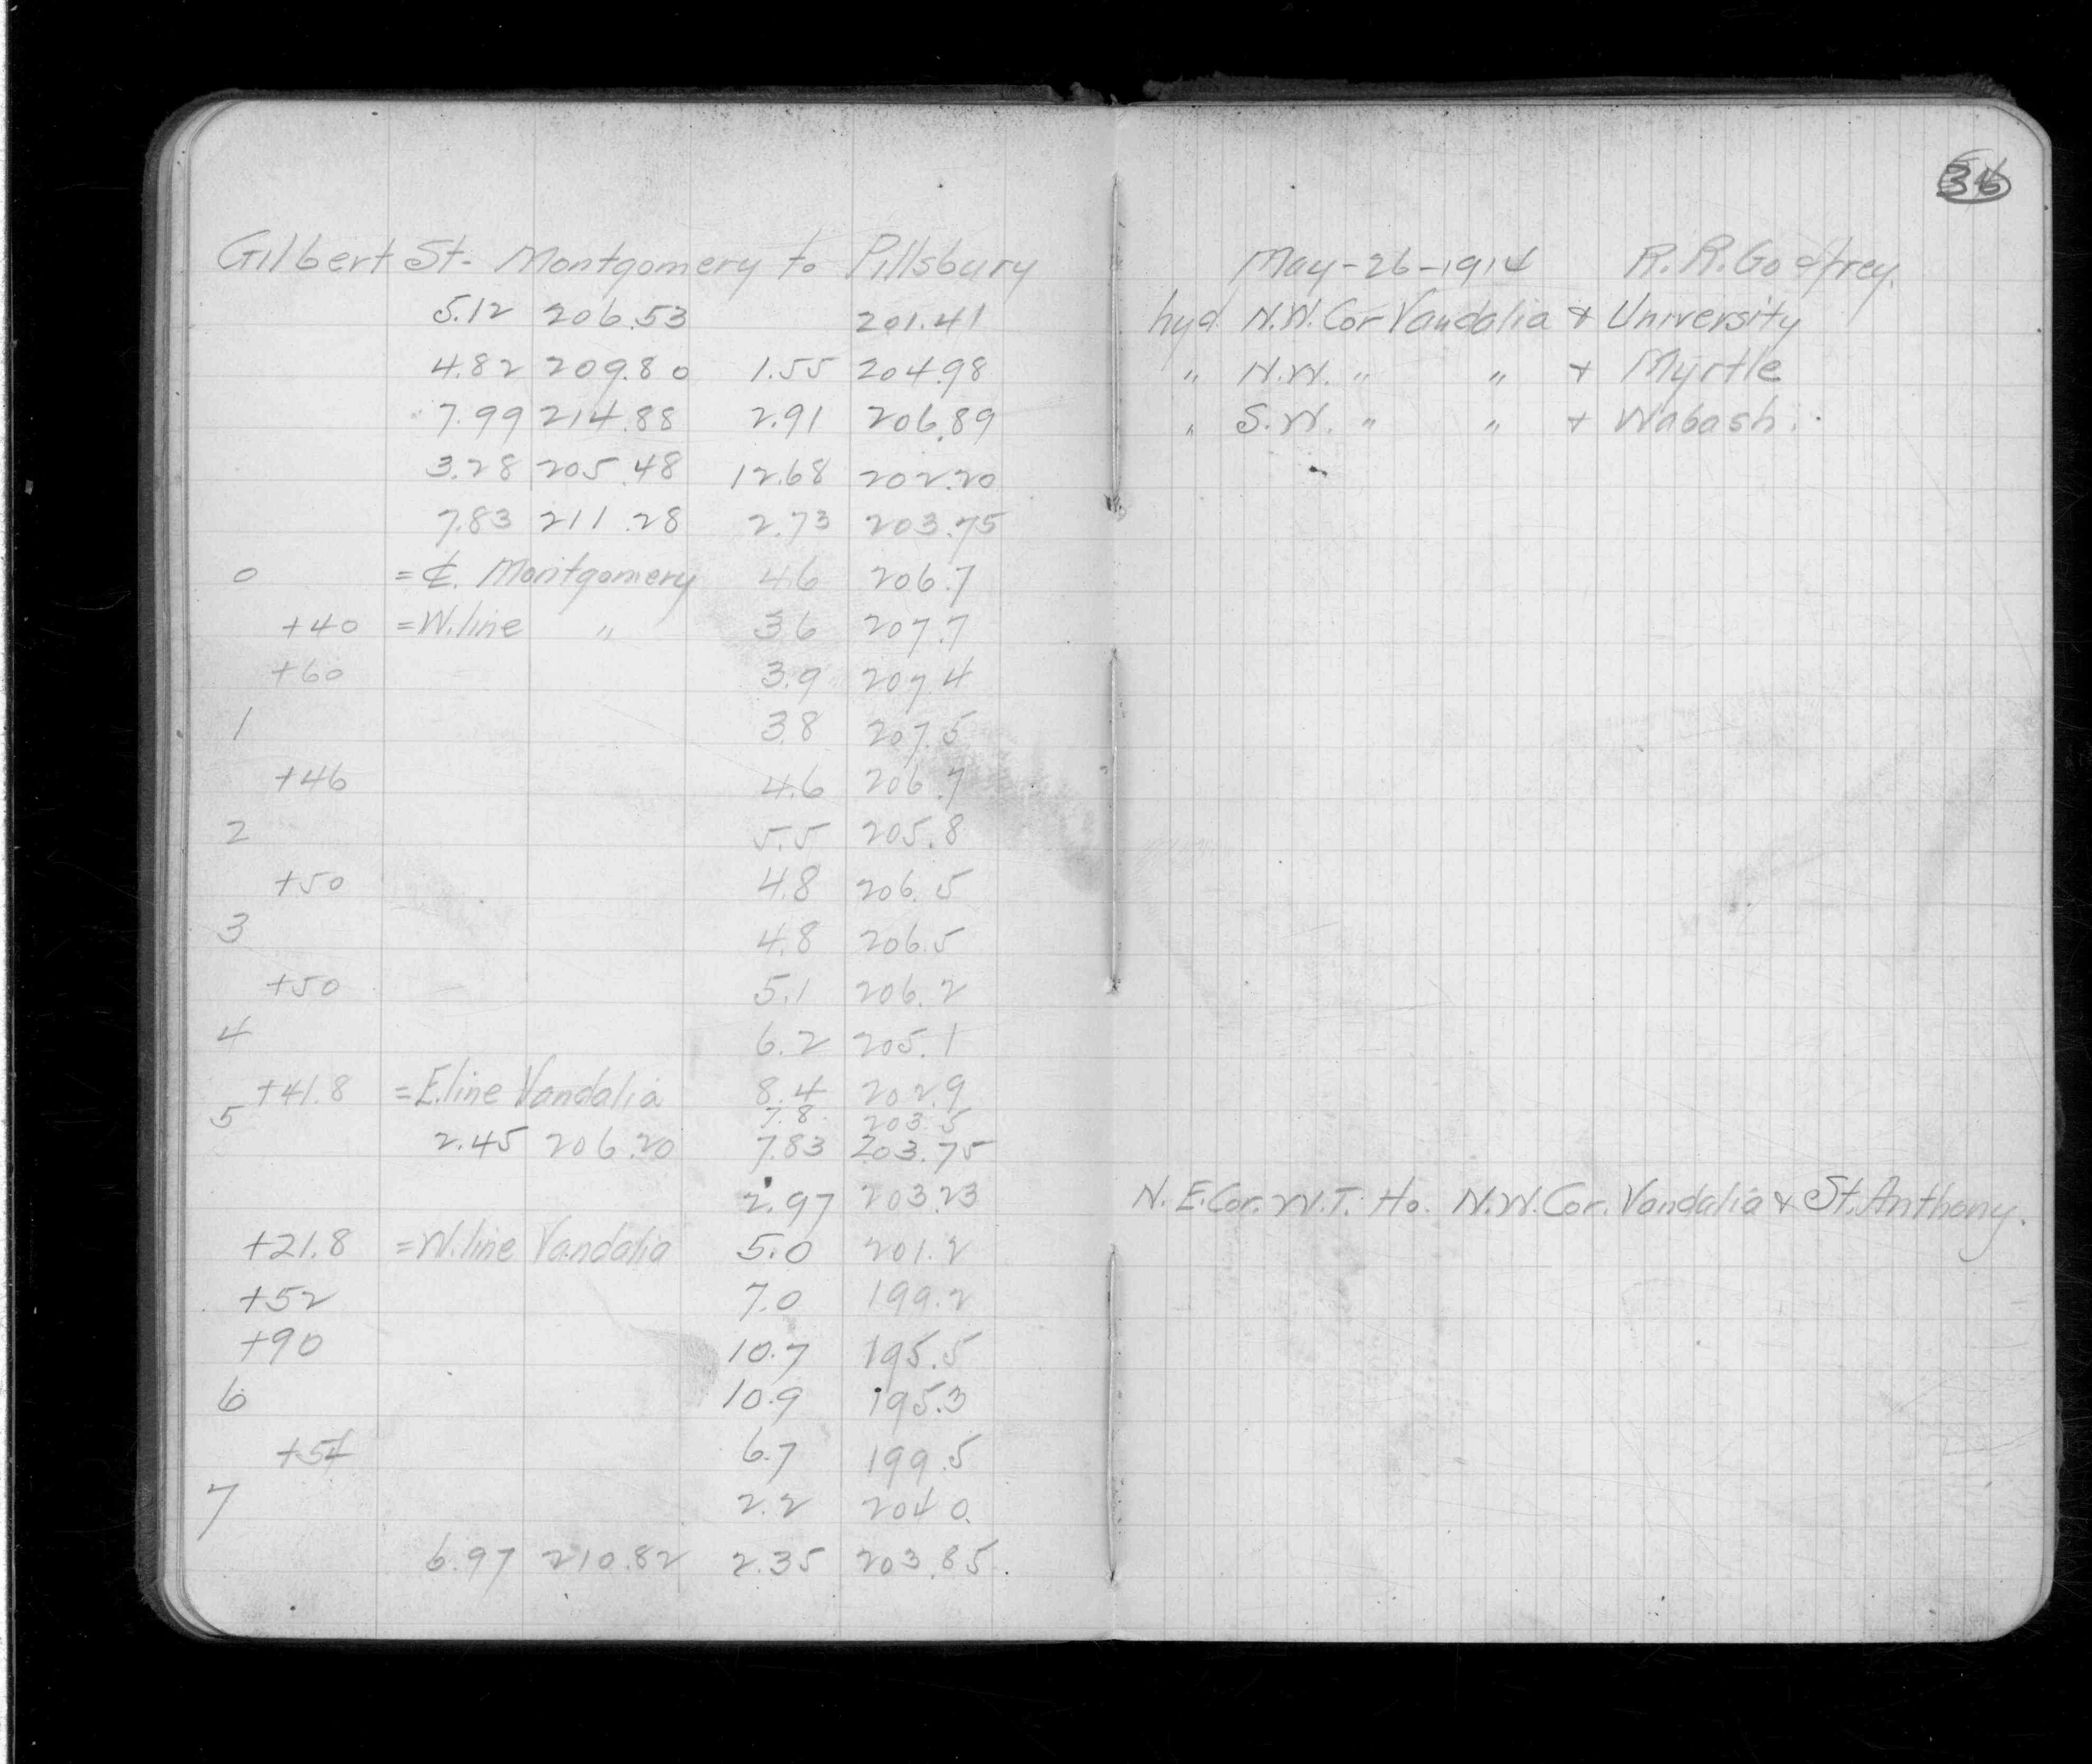 36
Gilbert St. Montgomery to Pillsbury May-26-1914 R.R. Godfrey.
5.12 206.53 201.41 hyd. N.W. Cor Vandalia + University
4.82 209.80 1.55 204.98 " N.W. " " + Myrtle
7.99 214.88 2.91 206.89 " S.W. " " + Wabash.
3.28 205.48 12.68 202.20
7.83 211.28 2.73 203.75
0 = ℄. Montgomery 4.6 206.7
+40 = W.line " 3.6 207.7
+60 3.9 207.4
1 3.8 207.5
+46 4.6 206.7
2 5.5 205.8
+50 4.8 206.5
3 4.8 206.5
+50 5.1 206.2
4 6.2 205.1
+41.8 = E.line Vandalia 8.4 202.9
5 7.8 203.5
2.45 206.20 7.83 203.75
2.97 203.23 N.E. Cor. W.T. Ho. N.W. Cor. Vandalia + St. Anthony.
+21.8 = W.line Vandalia 5.0 201.2
+52 7.0 199.2
+90 10.7 195.5
6 10.9 195.3
+54 6.7 199.5
7 2.2 204.0
6.97 210.82 2.35 203.85.